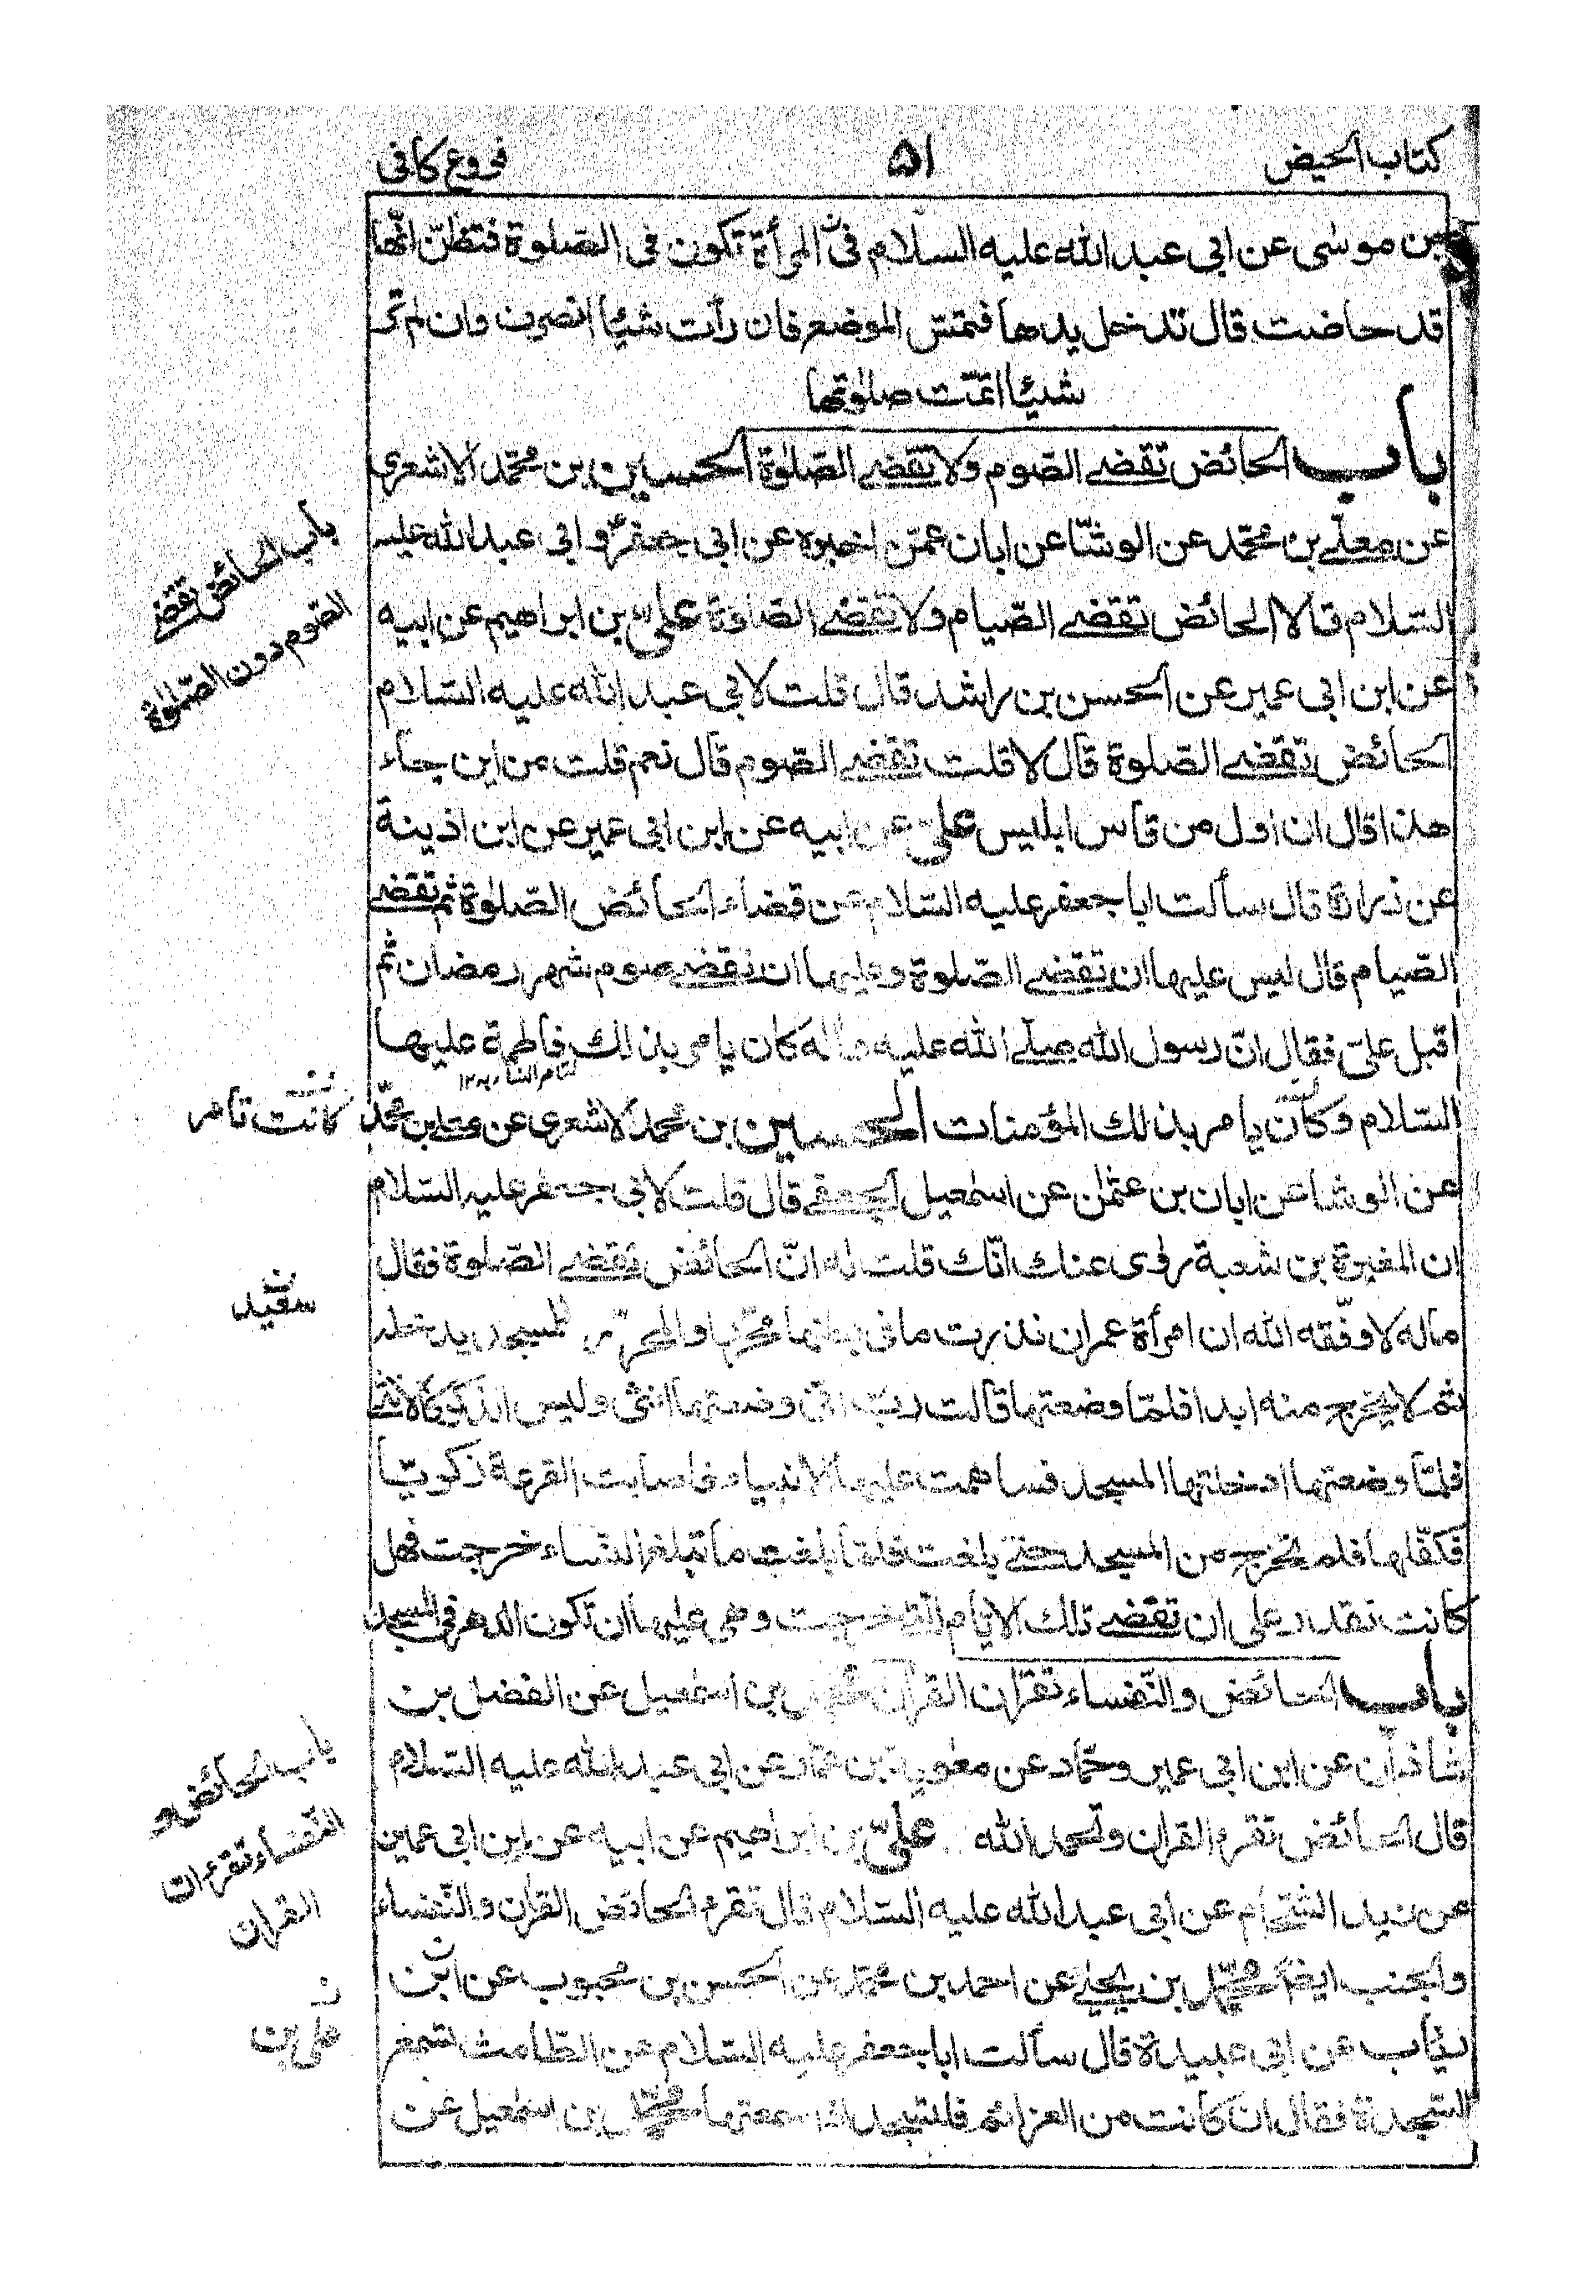 كتاب الحيض
٥١
فروع كافى
بن موسى عن ابى عبد الله عليه السلام فى المرأة تكون فى الصلوة فتظنّ انّها
قد حاضت قال تدخل يدها فتمسّ الموضع فان رأت شيئا انصرف وان لم تر
شيئا اتمّت صلوتها
باب الحائض تقضى الصّوم ولا تقضى الصّلوة الحسين بن محمّد الاشعرى
عن معلّى بن محمّد عن الوشّا عن ابان عمّن اخبره عن ابى جعفر وابى عبد الله عليه
السّلام قالا الحائض تقضى الصّيام ولا تقضى الصّلوة علىّ بن ابراهيم عن ابيه
عن ابن ابى عمير عن الحسن بن راشد قال قلت لابى عبد الله عليه السّلام
الحائض تقضى الصّلوة قال لا قلت تقضى الصّوم قال نعم قلت من اين جاء
هذا قال ان اول من قاس ابليس علىّ عن ابيه عن ابن ابى عمير عن ابن اذينة
عن زرارة قال سألت ابا جعفر عليه السّلام عن قضاء الحائض الصّلوة ثم تقضى
الصّيام قال ليس عليها ان تقضى الصّلوة وعليها ان تقضى صوم شهر رمضان ثم
اقبل علىّ فقال انّ رسول الله صلى الله عليه وآله كان يامر بذلك فاطمة عليها
السّلام وكان يامر بذلك المؤمنات الحسين بن محمد الاشعرى عن معلى بن محمّد
عن الوشا عن ابان بن عثمٰن عن اسمٰعيل الجعفى قال قلت لابى جعفر عليه السّلام
ان المغيرة بن شعبة روى عنك انّك قلت له انّ الحائض تقضى الصّلوة فقال
ماله لا وفّقه الله ان امرأة عمران نذرت ما فى بطنها محرّرا والمحرّر للمسجد يدخله
ثم لا يخرج منه ابدا فلمّا وضعتها قالت ربّ انى وضعتها انثى وليس الذكر كالانثى
فلمّا وضعتها ادخلتها المسجد فساهمت عليها الانبياء فاصابت القرعة زكريّا
فكفّلها فلم تخرج من المسجد حتى بلغت فلمّا بلغت ما تبلغ النساء خرجت فهل
كانت تقدر على ان تقضى تلك الايّام الّتى خرجت وهى عليها ان تكون الدهر فى المسجد
باب الحائض والنّفساء تقرآن القرآن محمّد بن اسمٰعيل عن الفضل بن
شاذان عن ابن ابى عمير وحمّاد عن معٰوية بن عمّار عن ابى عبد الله عليه السّلام
قال الحائض تقرء القرآن وتحمد الله علىّ بن ابراهيم عن ابيه عن ابن ابى عمير
عن زيد الشّحّام عن ابى عبد الله عليه السّلام قال تقرء الحائض القرآن والنّفساء
والجنب ايضا محمّد بن يحيى عن احمد بن محمّد عن الحسن بن محبوب عن ابن
رئاب عن ابى عبيدة قال سألت ابا جعفر عليه السّلام عن الطّامث تسمع
السّجدة فقال ان كانت من العزائم فلتسجد اذا سمعتها محمّد بن اسمٰعيل عن
باب الحائض تقضى
الصّوم دون الصّلوة
كانت تأمر
باب الحائض و
النّفساء تقرءان
القرآن
على بن